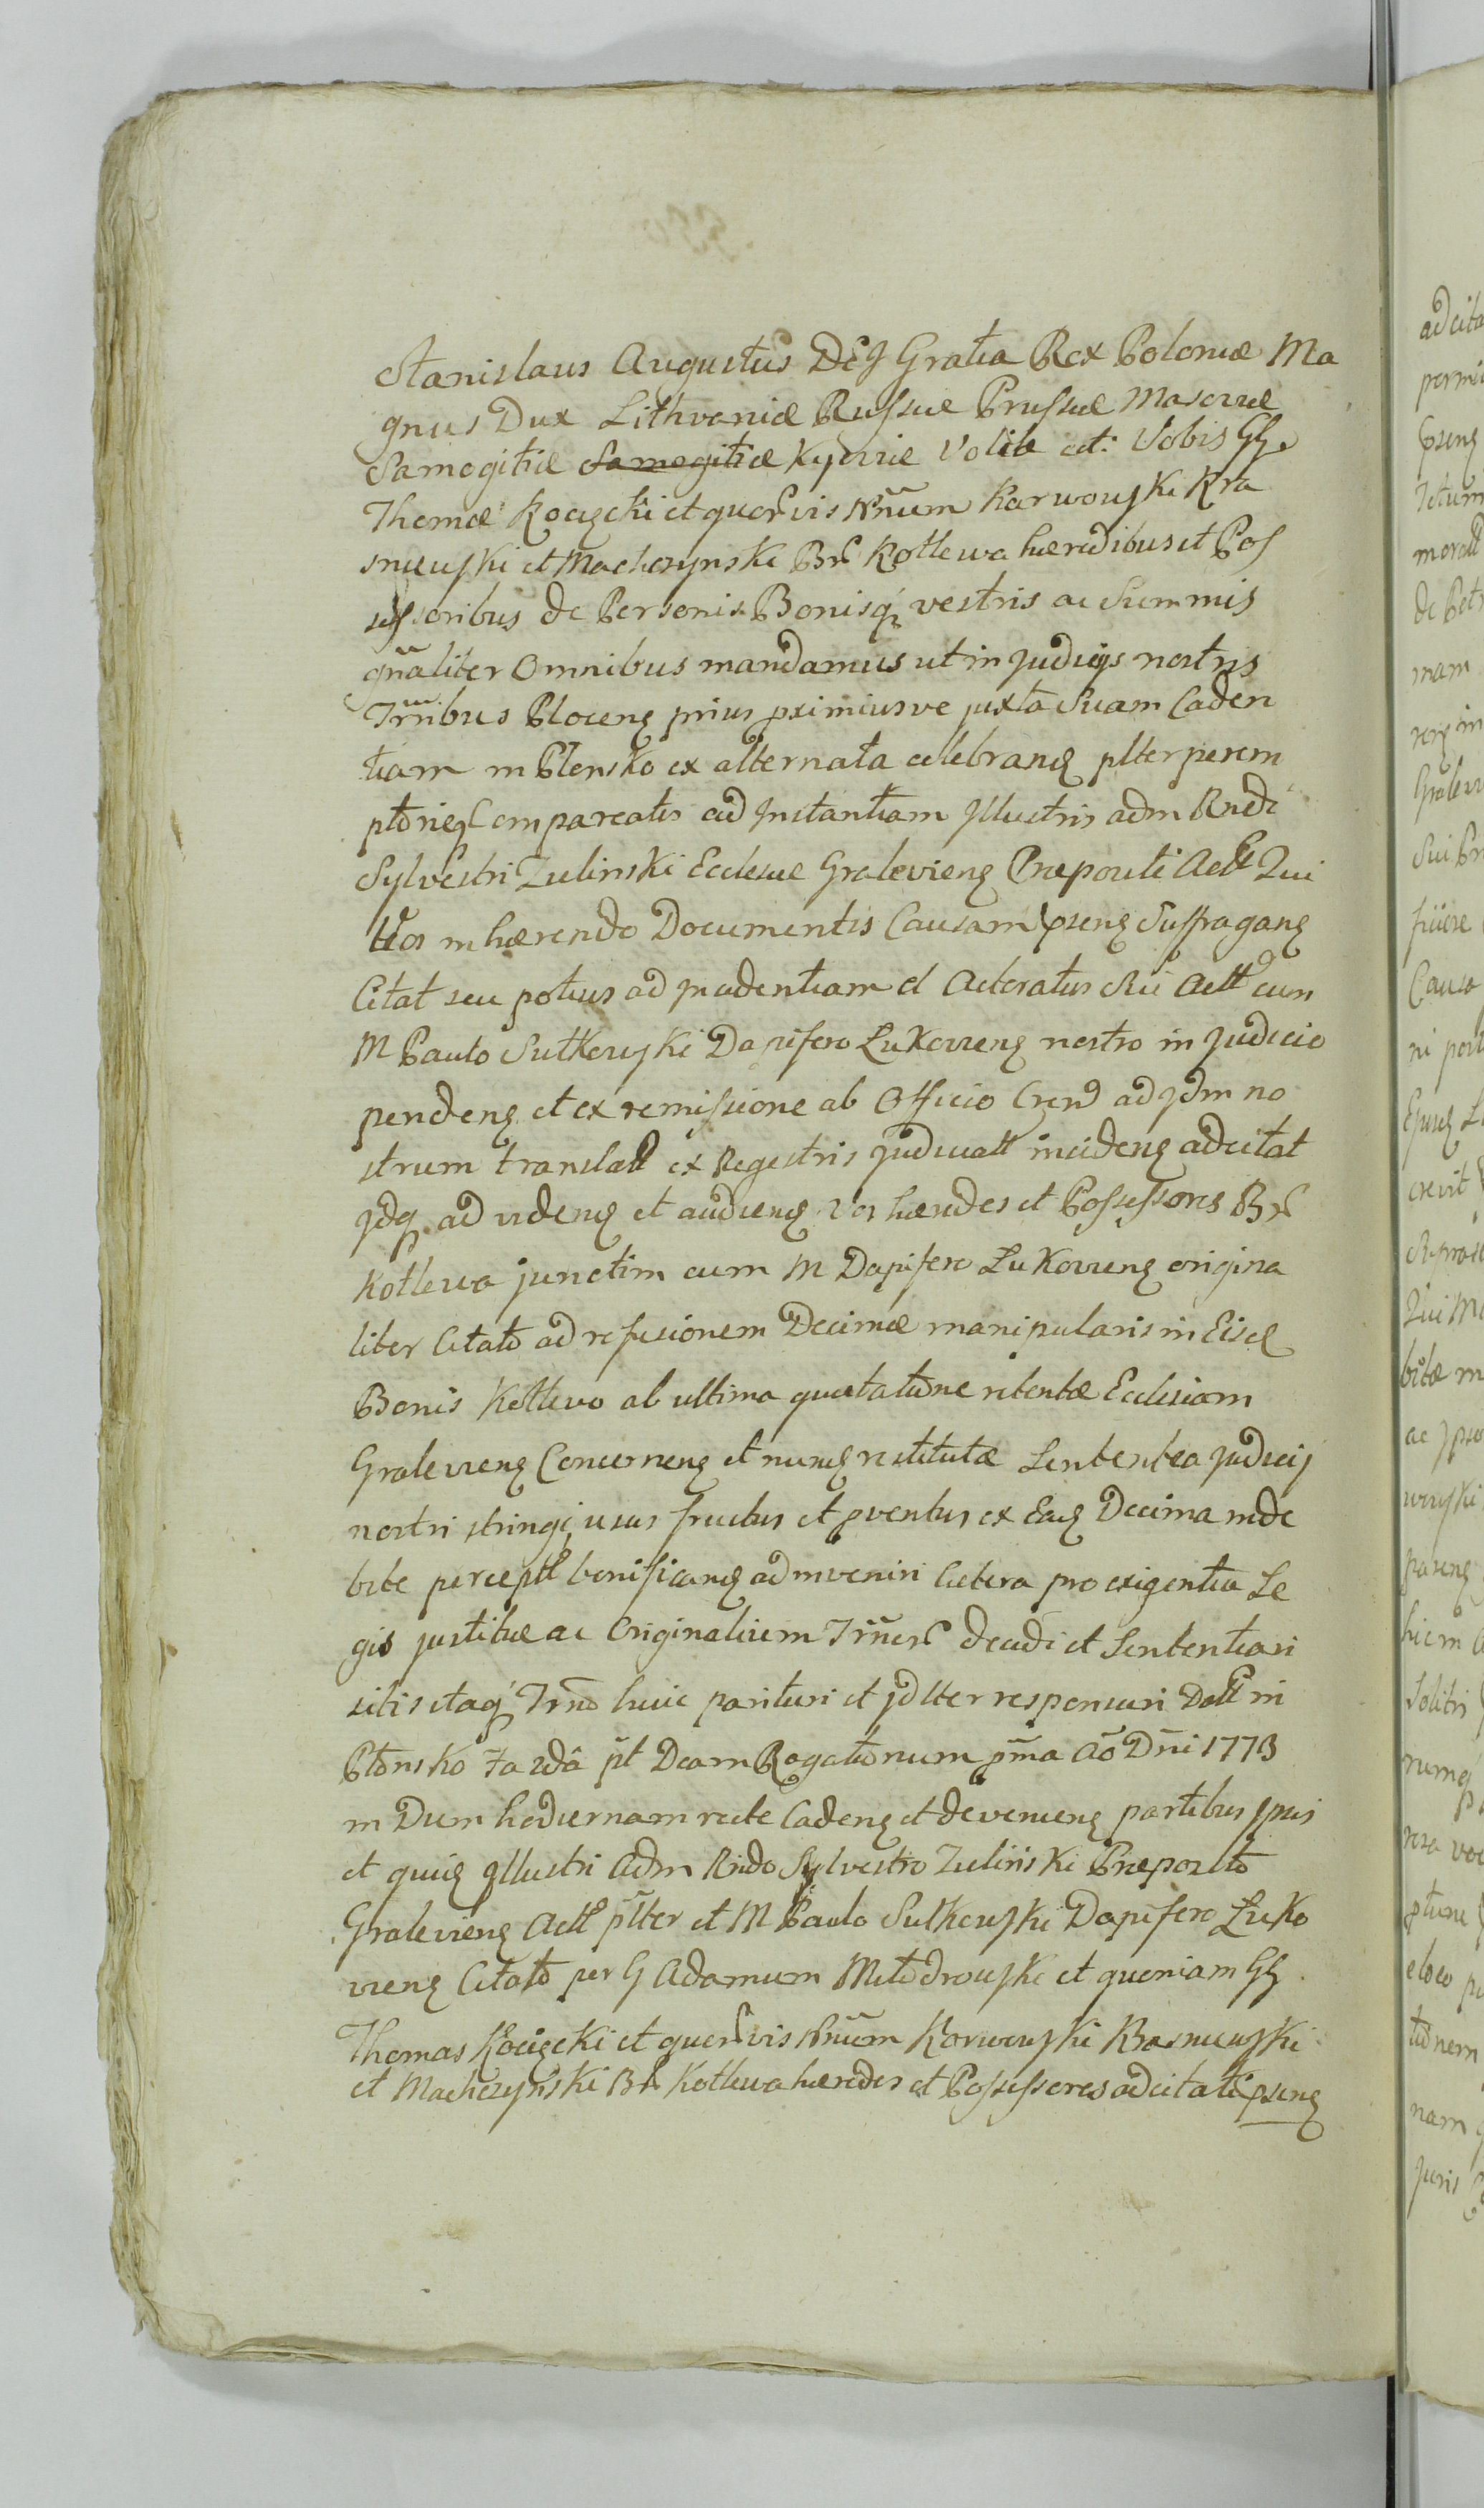 Stanislaus Augustus Dei Gratia Rex Poloniæ Ma
gnus Dux Lithvaniæ Russiæ Prussiæ Masoviæ
Samogitiæ Samogitiæ Kyoviæ Volh: ect: Vobis GG
Thomæ Kocięcki et quorvis Nnum Karwowski Kra
sniewski et Machczynski Br Kotlewa hæredibus et Pos
sessoribus de Personis Bonisq vestris ac Summis
gnaliter Omnibus mandamus ut in Judicijs nostris
Trrnbus Plocens prius pximiusve juxta Suam Caden
tiam in Plonsko ex alternata celebrans plter perem
ptorieq Compareatis ad Instantiam Illustris adm Rndi
Sylvestri Zulinski Ecclesiæ Graleviens Præpositi Act Qui
Vos inhærendo Documentis Causam psens Suffragans
Citat seu potius ad Instantiam et Actoratus Sui Actt cum
M Paulo Sutkowski Dapifero Lukoviens nostro in Judicio
pendens et ex remissione ab Officio Crend ad Jdm no
strum translatt ex Regestris Judicatt incidens adcitat
Jdq ad videns et audiens Vos hæredes et Possessores Br
Kotlewa junctim cum M Dapifero Lukoviens origina
liter Citato ad refusionem Decimæ manipularis in Eisd
Bonis Kotlewo ab ultima quietatione retentæ Ecclesiam
Graleviens Concernens et nunq restitutæ Sententia Judicij
nostri stringi usus fructus et pventus ex Eads Decima inde
bite perceptt bonificands adinveniri Cætera pro exigentia Le
gis justitiæ ac Originalium Trrner decidi et Sententiari
sitis itaq Trrno huic parituri et Jdlter responsuri Datt in
Plonsko Fa 2da pt Dcam Rogationum pma Ao Dni 1773
in Dum hodiernam recte Cadens et deveniens partibus Ipsis
et quids Illustri Adm Rndo Sylvestro Zulinski Præposito
Graleviens Actt plter et M Paulo Sutkowski Dapifero Luko
viens Citato per G Adamum Mlodrowski et quoniam GG
Thomas Kocięcki et quorvis Nnum Karwowski Krasniewski
et Machczynski Br Kotlewa hæredes et Possessores adcitati psens